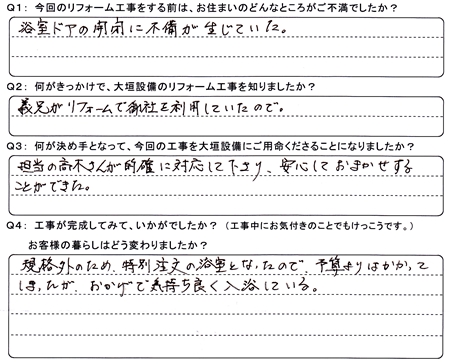 Q1： 今回のリフォーム工事をする前は、お住まいのどんなところがご不満でしたか？
浴室ドアの開閉に不備が生じていた。
Q2： 何がきっかけで、大垣設備のリフォーム工事を知りましたか？
義兄がリフォームで御社を利用していたので。
Q3： 何が決め手となって、今回の工事を大垣設備にご用命くださることになりましたか？
担当の高木さんが的確に対応して下さり、安心しておまかせする
ことができた。
Q4： 工事が完成してみて、いかがでしたか？ （工事中にお気付きのことでもけっこうです。）
お客様の暮らしはどう変わりましたか？
規格外のため、特別注文の浴室となったので、予算よりはかかって
しまったが、おかげで気持ち良く入浴している。